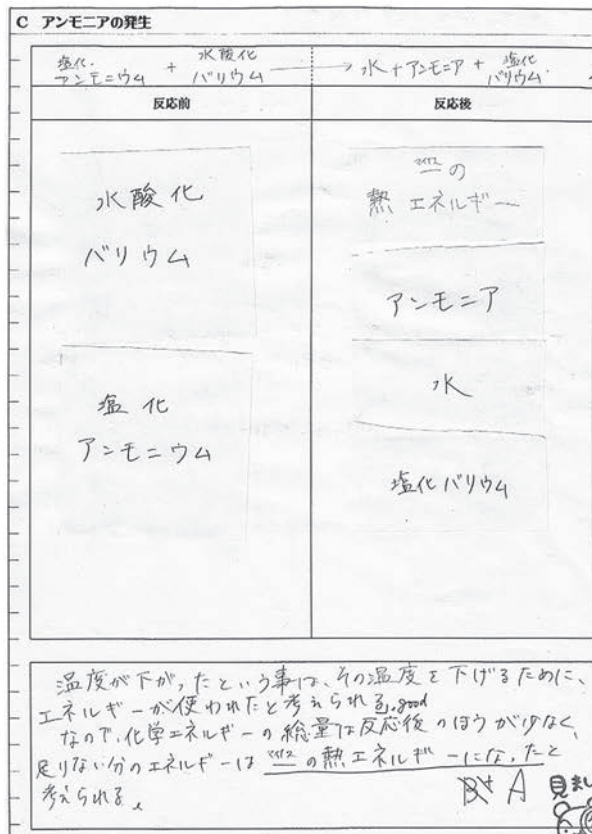 C アンモニアの発生
塩化アンモニウム + 水酸化バリウム → 水+アンモニア + 塩化バリウム
反応前
反応後
水酸化
バリウム
塩化
アンモニウム
マイナスの
熱エネルギー
アンモニア
水
塩化バリウム
温度が下がったという事は、その温度を下げるために、
エネルギーが使われたと考えられる。good
なので、化学エネルギーの総量は反応後のほうが少なく、
足りない分のエネルギーはマイナスの熱エネルギーになったと
考えられる。
B+ A
見まし